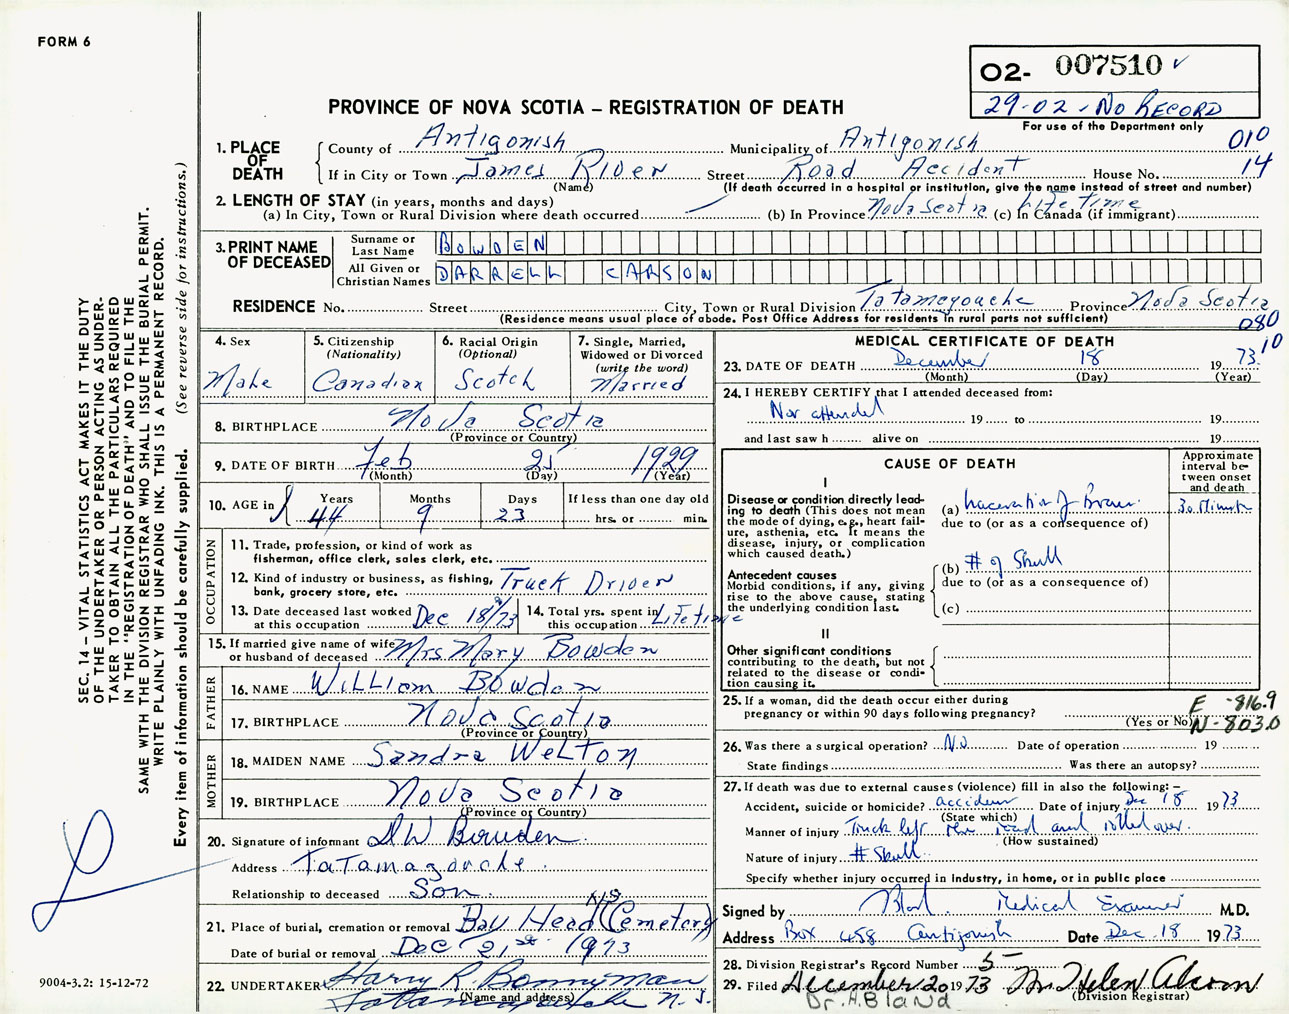 FORM 6
O2- 007510 ✓
29-02 - No Record
For use of the Department only
PROVINCE OF NOVA SCOTIA – REGISTRATION OF DEATH
010
14
1. PLACE OF DEATH
County of Antigonish Municipality of Antigonish
If in City or Town James River Street Road Accident House No.
(Name) (If death occurred in a hospital or institution, give the name instead of street and number)
2. LENGTH OF STAY (in years, months and days)
(a) In City, Town or Rural Division where death occurred (b) In Province Nova Scotia (c) In Canada (if immigrant) Life time
3. PRINT NAME OF DECEASED
Surname or Last Name BOWDEN
All Given or Christian Names DARRELL CARSON
RESIDENCE No. Street City, Town or Rural Division Tatamagouche Province Nova Scotia
(Residence means usual place of abode. Post Office Address for residents in rural parts not sufficient)
080
10
4. Sex Male
5. Citizenship (Nationality) Canadian
6. Racial Origin (Optional) Scotch
7. Single, Married, Widowed or Divorced (write the word) Married
8. BIRTHPLACE Nova Scotia
(Province or Country)
9. DATE OF BIRTH Feb 25 1929
(Month) (Day) (Year)
10. AGE in Years 44 Months 9 Days 23 If less than one day old hrs. or min.
OCCUPATION
11. Trade, profession, or kind of work as fisherman, office clerk, sales clerk, etc.
12. Kind of industry or business, as fishing, bank, grocery store, etc. Truck Driver
13. Date deceased last worked at this occupation Dec 18/73
14. Total yrs. spent in this occupation Lifetime
15. If married give name of wife or husband of deceased Mrs Mary Bowden
FATHER
16. NAME William Bowden
17. BIRTHPLACE Nova Scotia
(Province or Country)
MOTHER
18. MAIDEN NAME Sandra Welton
19. BIRTHPLACE Nova Scotia
(Province or Country)
20. Signature of informant D W Bowden
Address Tatamagouche
Relationship to deceased Son
21. Place of burial, cremation or removal Bay Head (Cemetery) N.S.
Date of burial or removal Dec 21st 1973
22. UNDERTAKER Harry R. Bonnyman
Tatamagouche N.S.
(Name and address)
MEDICAL CERTIFICATE OF DEATH
23. DATE OF DEATH December 18 1973
(Month) (Day) (Year)
24. I HEREBY CERTIFY that I attended deceased from:
Not attended 19 to 19
and last saw h alive on 19
CAUSE OF DEATH
Approximate interval between onset and death
I
Disease or condition directly leading to death (This does not mean the mode of dying, e.g., heart failure, asthenia, etc. It means the disease, injury, or complication which caused death.)
(a) Laceration of Brain 30 Minutes
due to (or as a consequence of)
Antecedent causes
Morbid conditions, if any, giving rise to the above cause, stating the underlying condition last.
(b) # of Skull
due to (or as a consequence of)
(c)
II
Other significant conditions
contributing to the death, but not related to the disease or condition causing it.
25. If a woman, did the death occur either during pregnancy or within 90 days following pregnancy?
(Yes or No)
E -816.9
N-803.0
26. Was there a surgical operation? No Date of operation 19
State findings Was there an autopsy?
27. If death was due to external causes (violence) fill in also the following: –
Accident, suicide or homicide? accident Date of injury Dec 18 1973
(State which)
Manner of injury Truck left the road and rolled over.
(How sustained)
Nature of injury # Skull
Specify whether injury occurred in Industry, in home, or in public place
Signed by Bland Medical Examiner M.D.
Address Box 458 Antigonish Date Dec. 18 1973
28. Division Registrar's Record Number 5
29. Filed December 20 1973 Mrs. Helen Ahern
(Division Registrar)
Dr. A. Bland
SEC. 14 – VITAL STATISTICS ACT MAKES IT THE DUTY
OF THE UNDERTAKER OR PERSON ACTING AS UNDER-
TAKER TO OBTAIN ALL THE PARTICULARS REQUIRED
IN THE "REGISTRATION OF DEATH" AND TO FILE THE
SAME WITH THE DIVISION REGISTRAR WHO SHALL ISSUE THE BURIAL PERMIT.
WRITE PLAINLY WITH UNFADING INK. THIS IS A PERMANENT RECORD.
Every item of information should be carefully supplied. (See reverse side for instructions.)
9004-3.2: 15-12-72